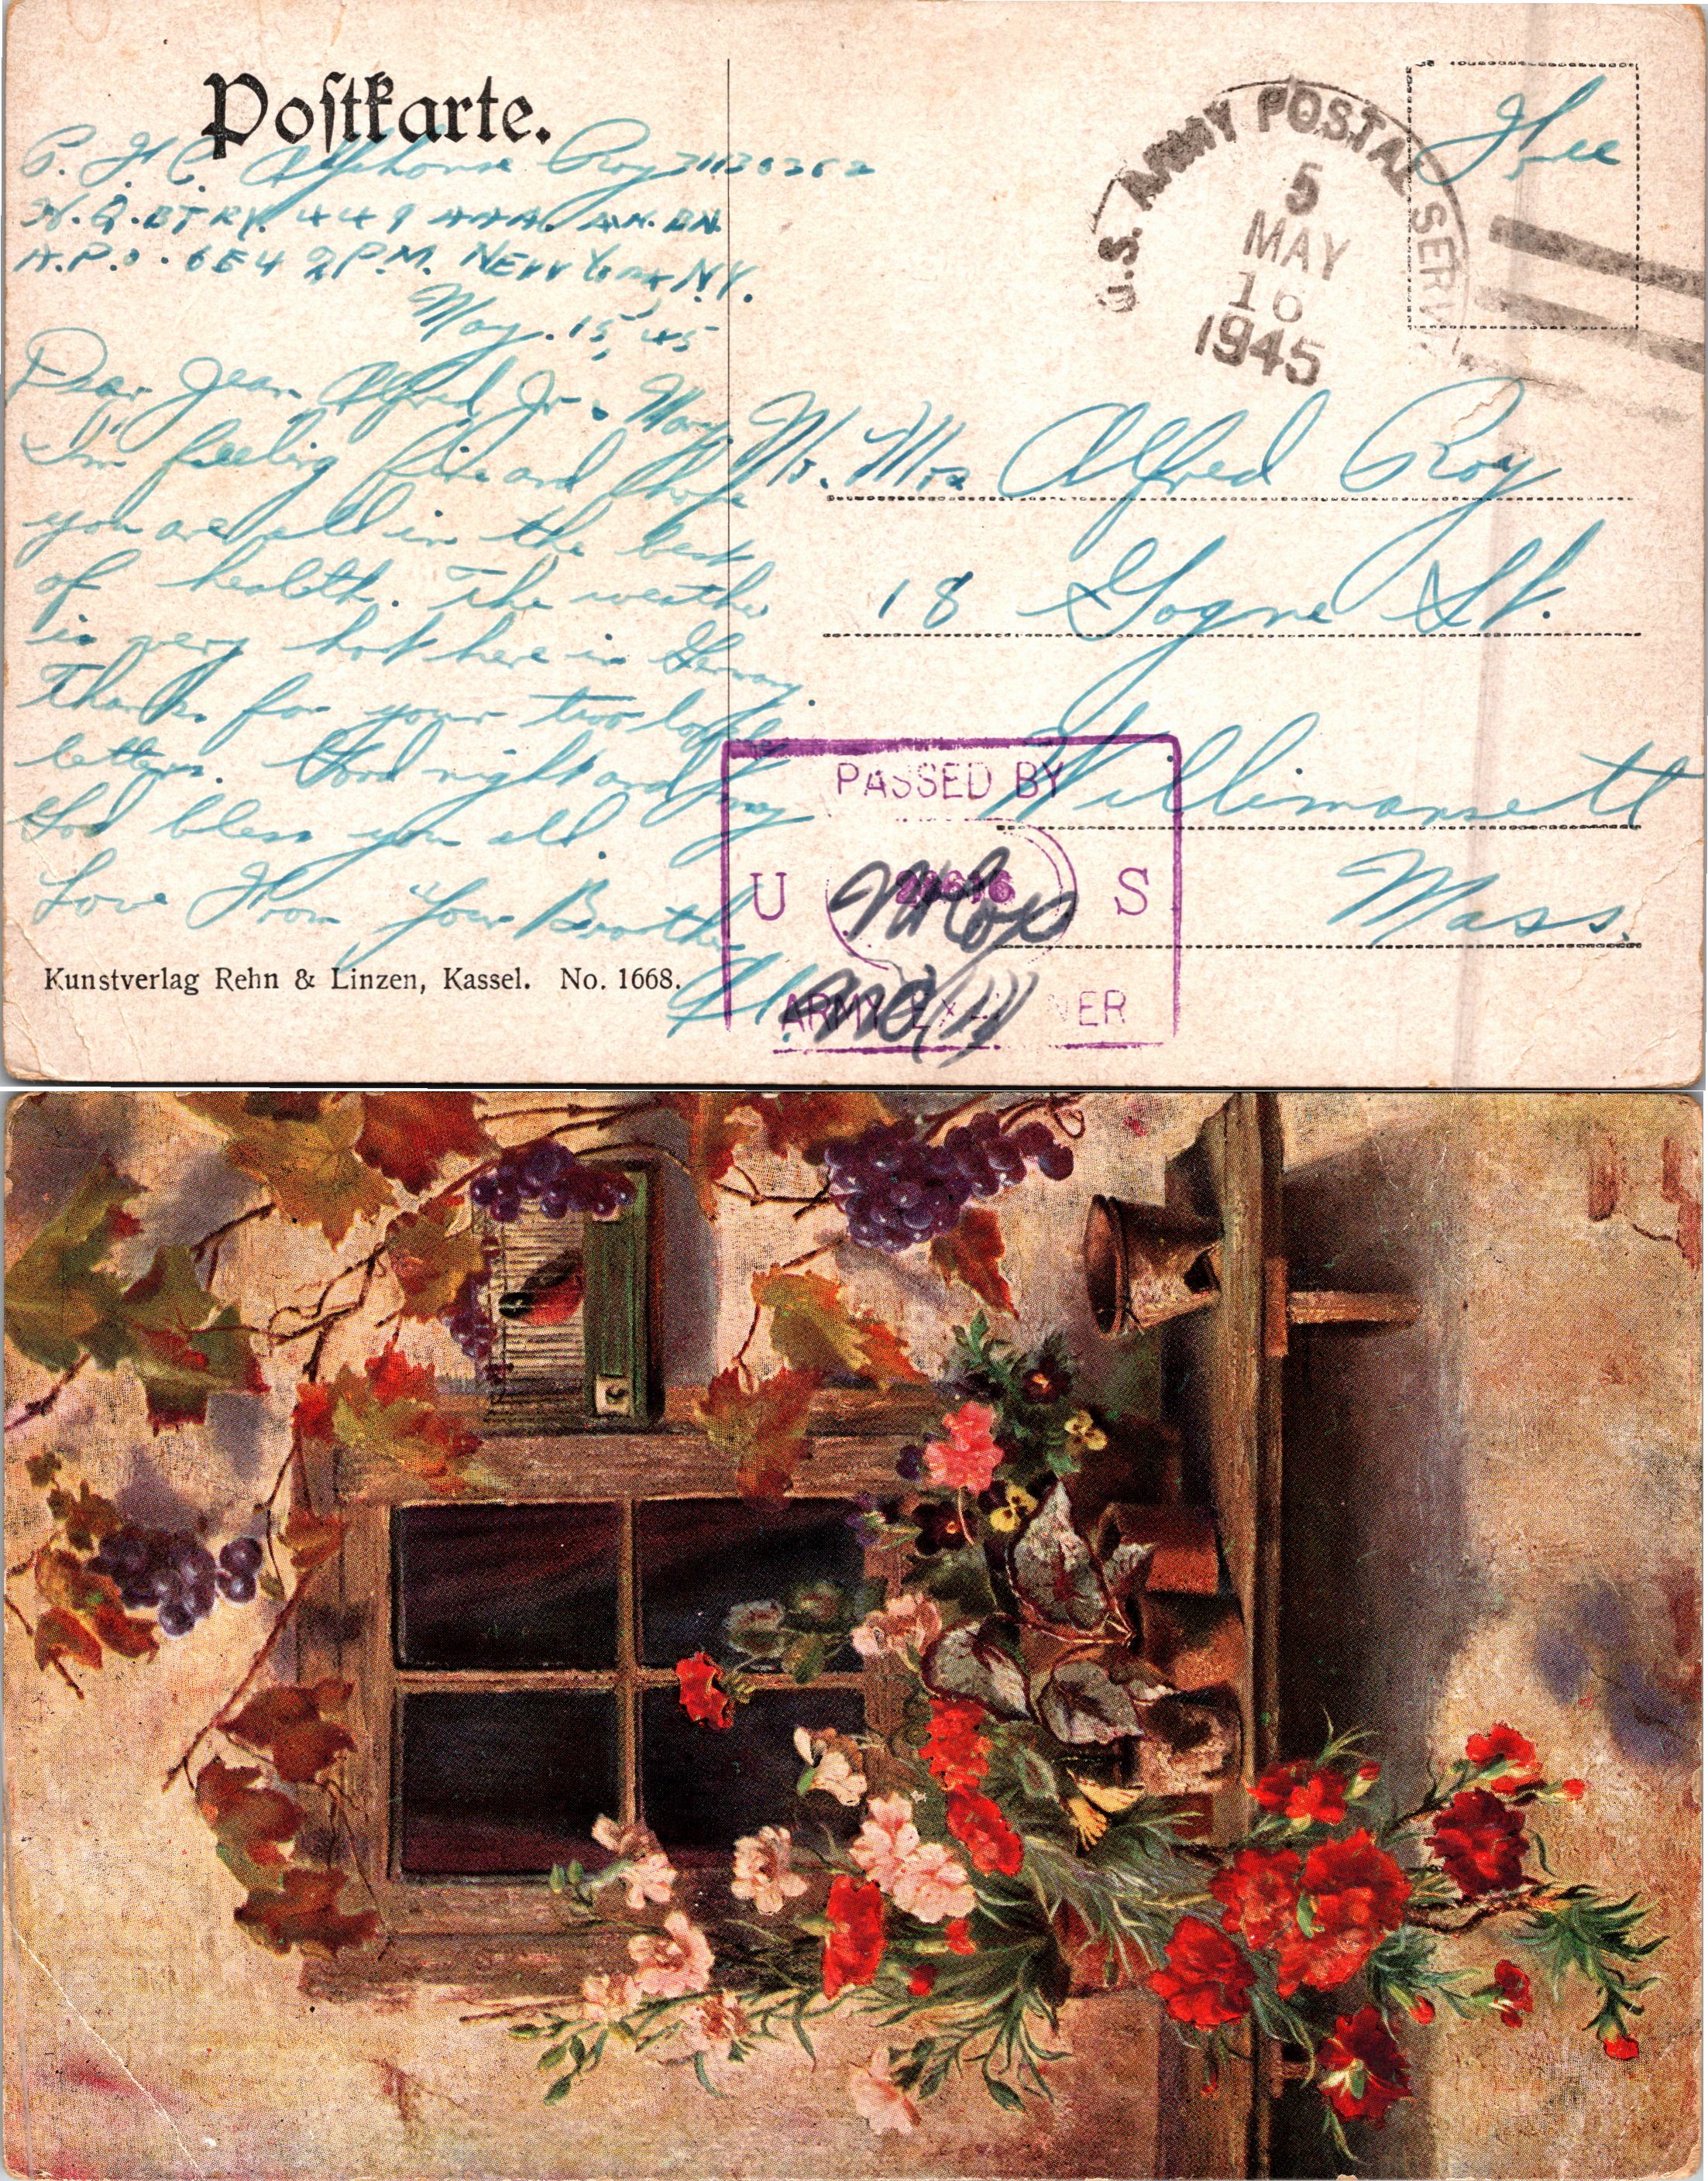 Postkarte.
P.F.C. Alphonse Roy 31130362
H.Q. BTRY. 449 AAA. AW. BN.
A.P.O. 654 % P.M. New York N.Y.
May. 15, 45
Dear Jean Alfred Jr. Mary.
I'm feeling fine and hope
you are all in the best
of health. The weather
is very hot here in Germany.
Thanks for your two lovely
letters. Good night and may
God bless you all.
Love From Your Brother
Al.
Kunstverlag Rehn & Linzen, Kassel. No. 1668.
U.S. ARMY POSTAL SERV
5
MAY
16
1945
Free
Mr. Mrs Alfred Roy
18 Gogne St.
Willimansett
Mass.
PASSED BY
U S
ARMY EXAMINER